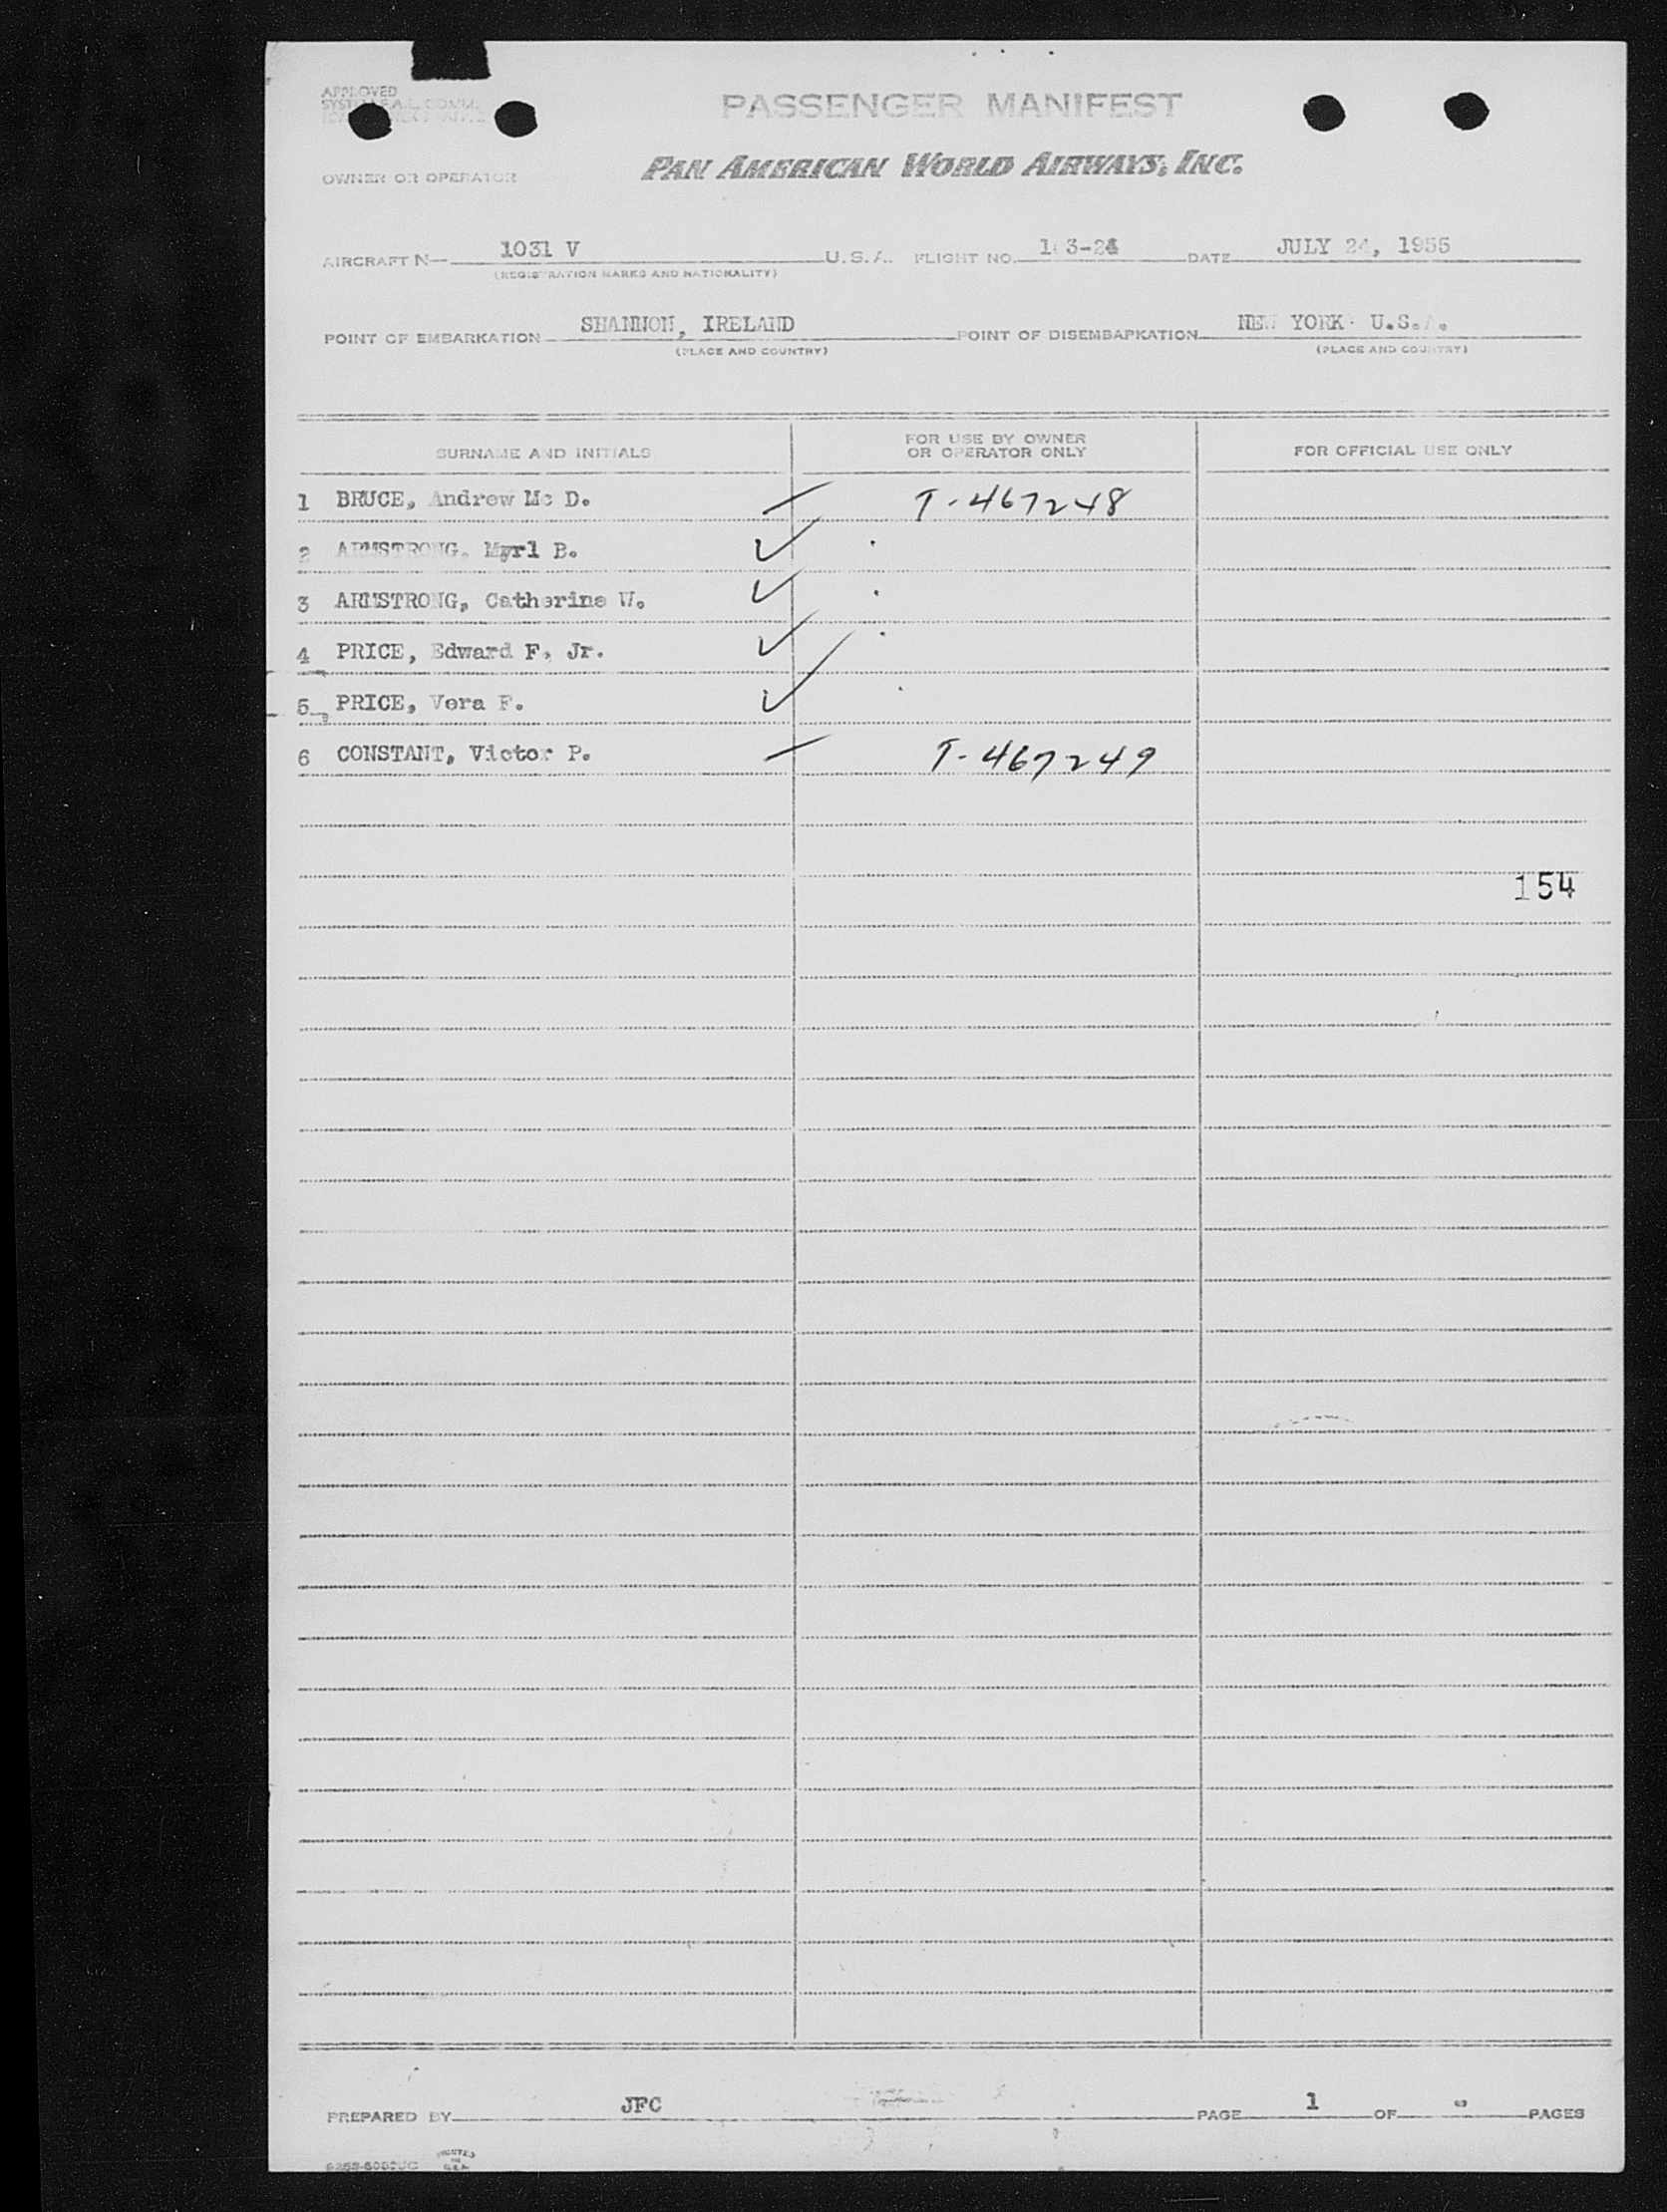 APPROVED
PASSENGER MANIFEST
OWNER OR OPERATOR PAN AMERICAN WORLD AIRWAYS, INC.
AIRCRAFT N— 1031 V U.S.A. FLIGHT NO. DATE JULY 24, 1955
(REGISTRATION MARKS AND NATIONALITY)
POINT OF EMBARKATION SHANNON, IRELAND POINT OF DISEMBARKATION NEW YORK U.S.A.
(PLACE AND COUNTRY) (PLACE AND COUNTRY)
SURNAME AND INITIALS FOR USE BY OWNER OR OPERATOR ONLY FOR OFFICIAL USE ONLY
1 BRUCE, Andrew Mc D. T-467248
2 ARMSTRONG, Myrl B.
3 ARMSTRONG, Catherine W.
4 PRICE, Edward F. Jr.
5 PRICE, Vera F.
6 CONSTANT, Victor P. T-467249
154
PREPARED BY JFC PAGE 1 OF PAGES
PRINTED
IN
U.S.A.